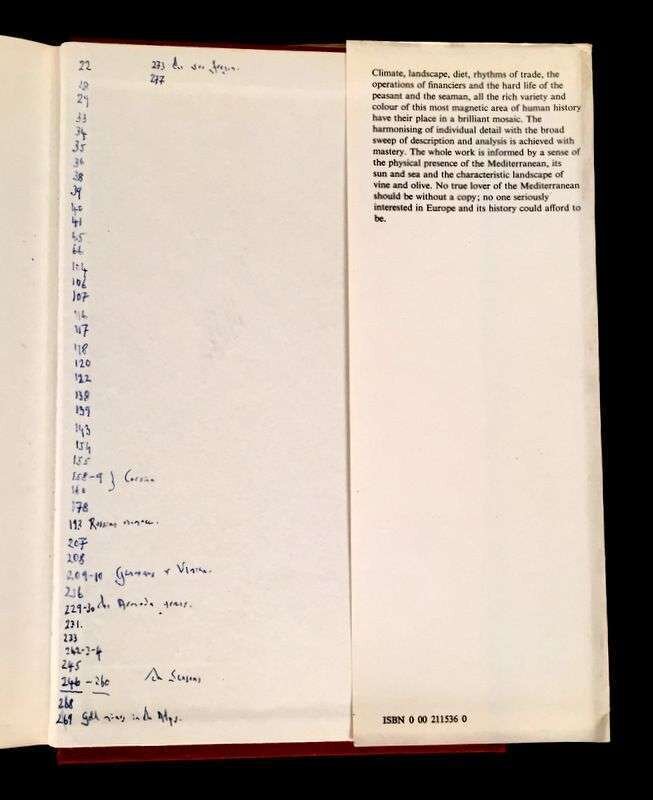 22
28
29
33
34
35
36
38
39
40
41
45
66
104
106
107
116
117
118
120
122
138
139
143
154
155
158-9 } Corsica
160
178
193 Russian
207
208
209-10 Germans + Venice.
216
229-30 the Armada years.
231.
233
242-3-4
245
246 - 260 The Seasons
268
269 Gold mines in the Alps.
273 the
277
Climate, landscape, diet, rhythms of trade, the
operations of financiers and the hard life of the
peasant and the seaman, all the rich variety and
colour of this most magnetic area of human history
have their place in a brilliant mosaic. The
harmonising of individual detail with the broad
sweep of description and analysis is achieved with
mastery. The whole work is informed by a sense of
the physical presence of the Mediterranean, its
sun and sea and the characteristic landscape of
vine and olive. No true lover of the Mediterranean
should be without a copy; no one seriously
interested in Europe and its history could afford to
be.
ISBN 0 00 211536 0